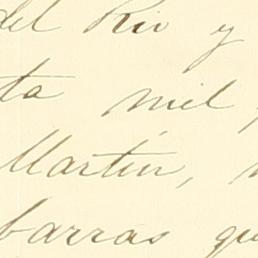 del Rio y
ta mil
Martin,
barras qu